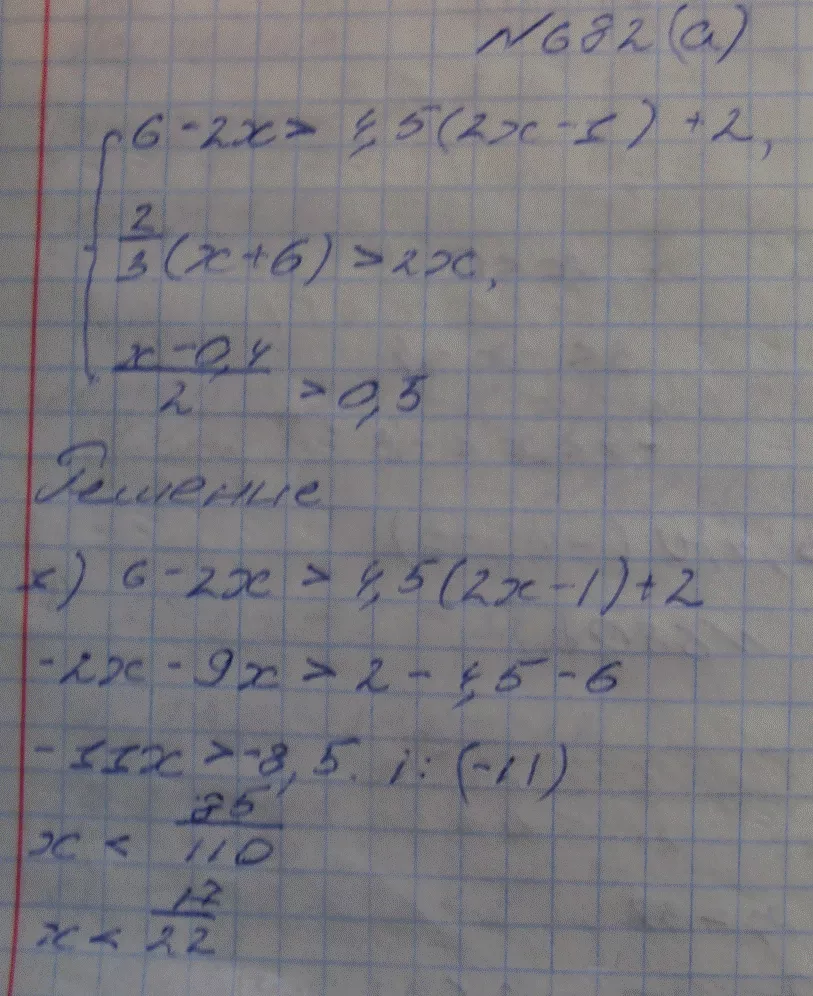 №682(а)
6-2x> 4,5(2x-1)+2,
2/3(x+6)>2x,
x-0,4/2 >0,5
Решение
1) 6-2x>4,5(2x-1)+2
-2x-9x>2-4,5-6
-11x>-8,5 |:(-11)
x< 85/110
x< 17/22